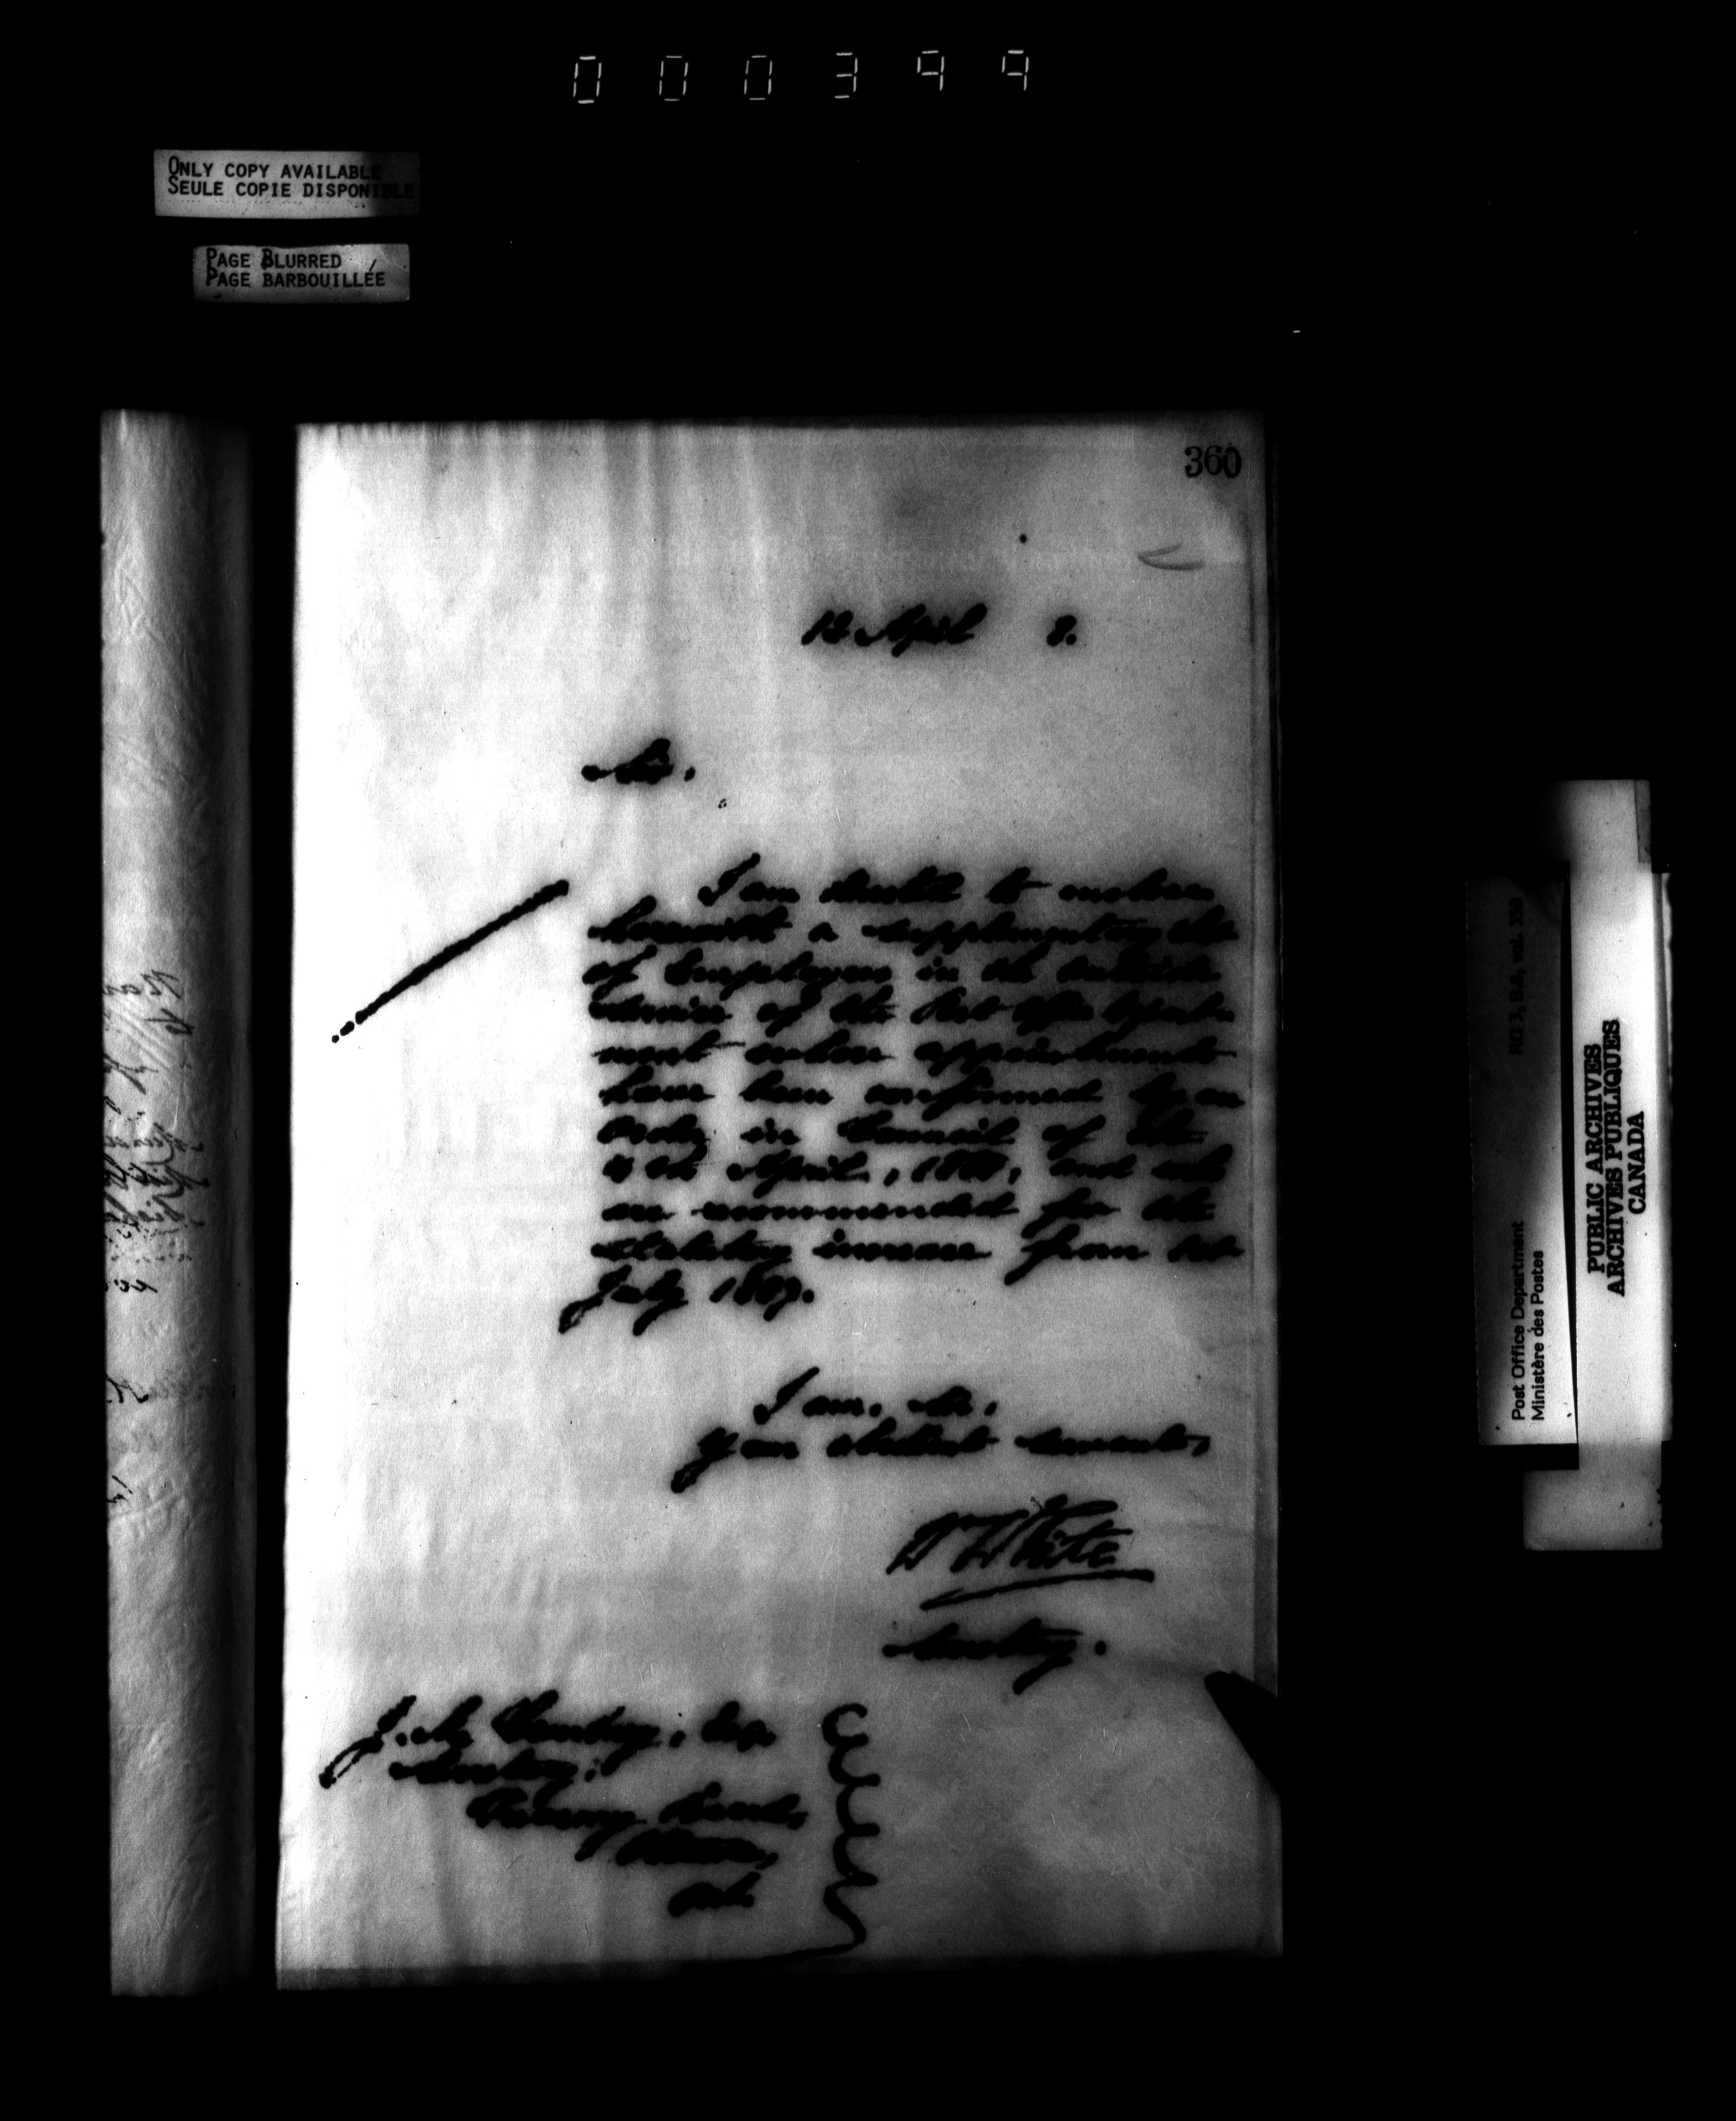 000399
ONLY COPY AVAILABLE
SEULE COPIE DISPONIBLE
PAGE BLURRED
PAGE BARBOUILLÉE
360
12 April 8.
Sir,
I am directed to enclose
herewith a supplementary list
of Employees in the outside
service of the Post Office Depart-
ment whose appointments
have been confirmed by an
Order in Council of the
April, 1888, and who
are recommended for the
statutory increase from 1st
July 1887.
I am, Sir,
Your obedient servant,
W White
Secretary.
J. M. Courtney, Esq.
Secretary,
Treasury Board,
Ottawa,
Ont.
RG 3, D.3, vol. 350
Post Office Department
Ministère des Postes
PUBLIC ARCHIVES
ARCHIVES PUBLIQUES
CANADA